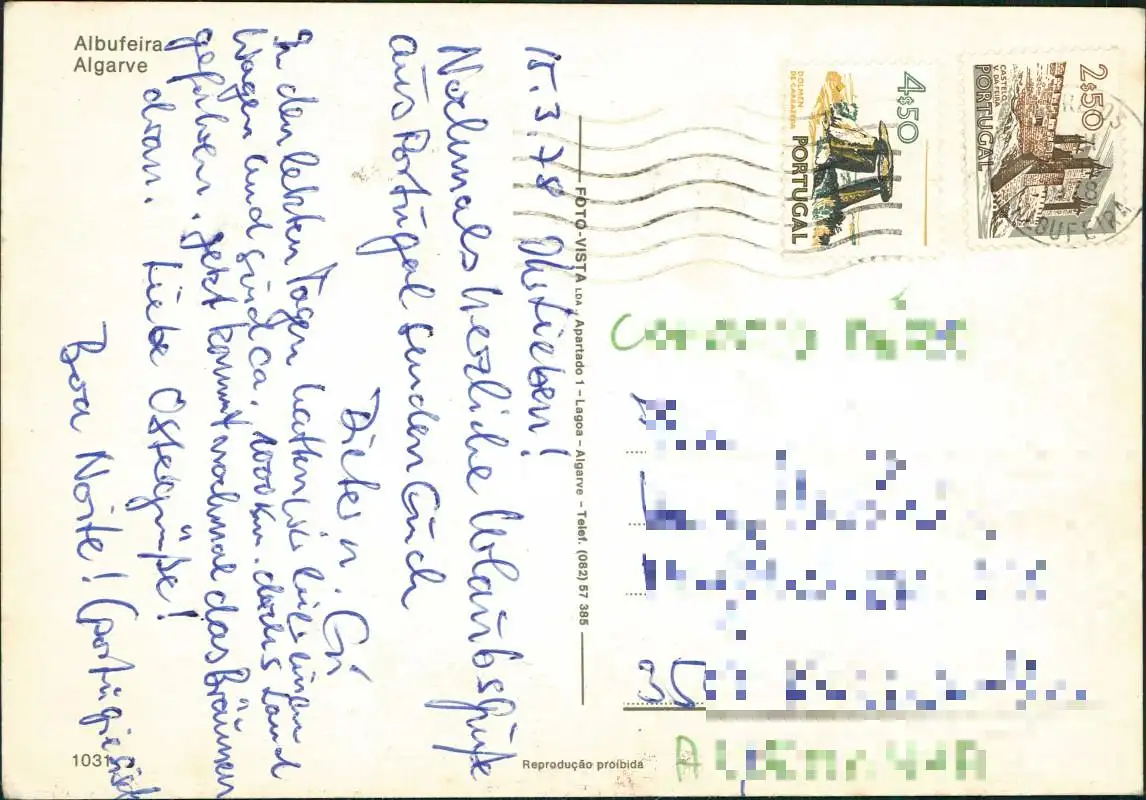 Albufeira
Algarve
15.3.78 Ihr Lieben!
Nochmals herzliche Urlaubsgrüße
aus Portugal senden Euch
Dieter u. Gü
In den letzten Tagen hatten wir hier einen
Wagen und sind ca. 1000 km durchs Land
gefahren. Jetzt kommt nochmal das Bräunen
dran. Liebe Ostergrüße!
Boa Noite! (portugiesisch
1031
FOTO-VISTA LDA - Apartado 1 - Lagoa - Algarve - Telef. (082) 57 385
Reprodução proíbida
DOLMEN
DE CARRAZEDA
4$50
PORTUGAL
CASTELO DA
V. DA FEIRA
2$50
PORTUGAL
ALBUFEIRA
35